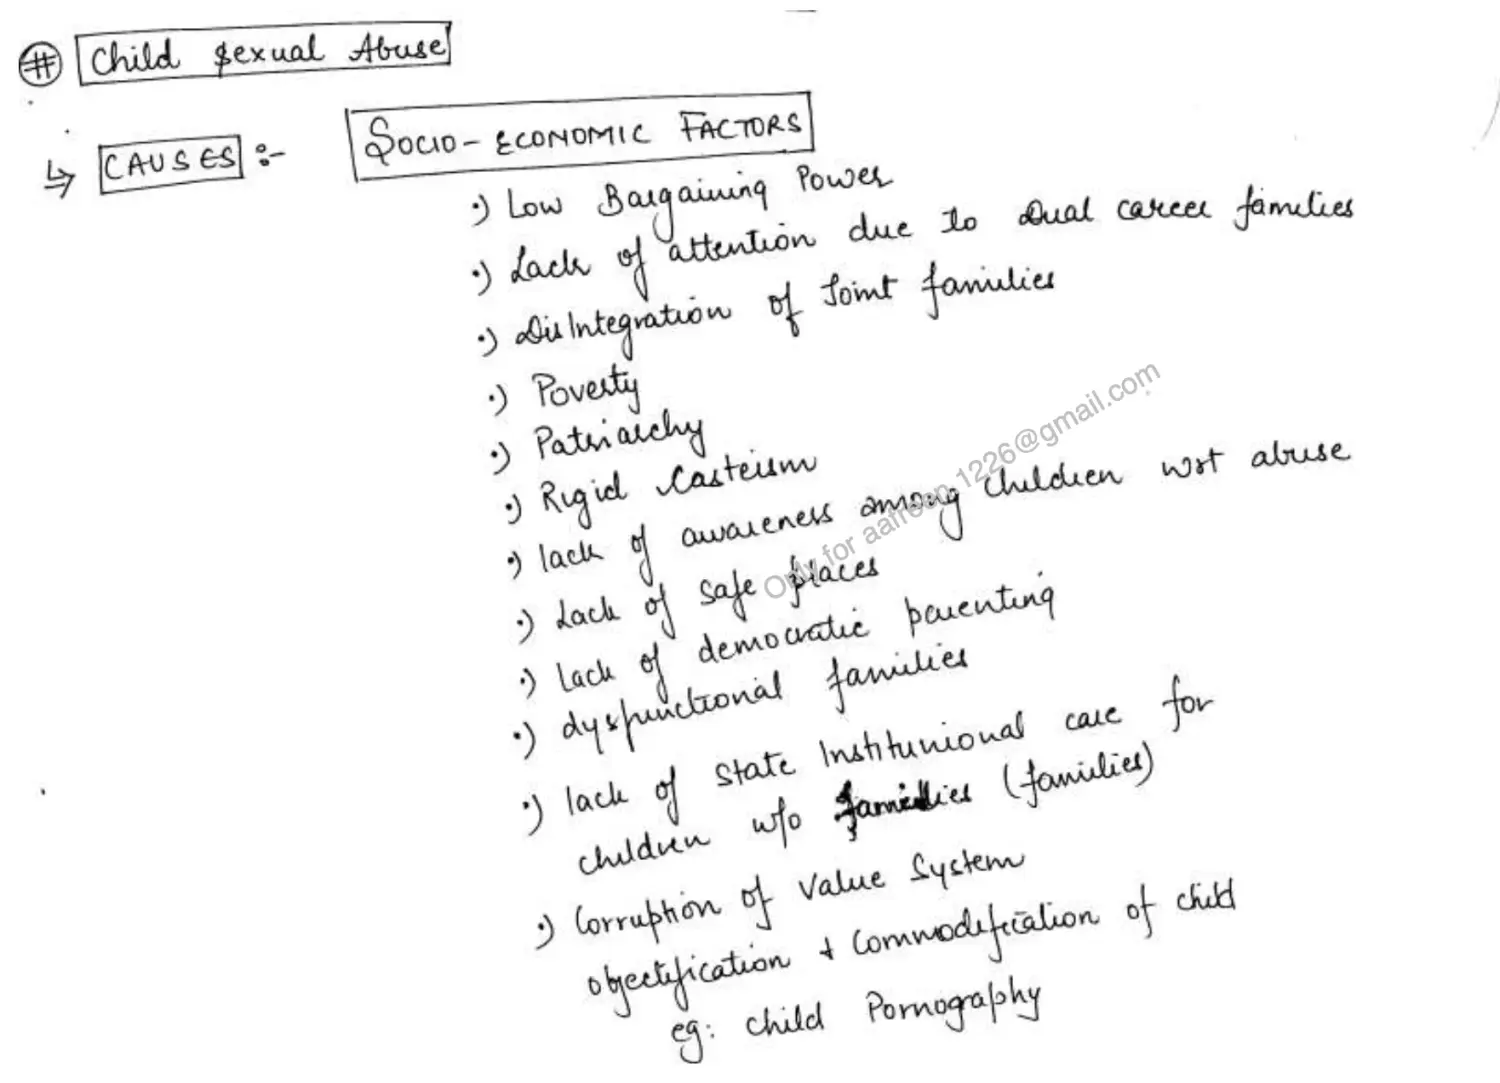 # Child Sexual Abuse
↳ CAUSES :- SOCIO-ECONOMIC FACTORS
•) Low Bargaining Power
•) Lack of attention due to Dual career families
•) DisIntegration of Joint families
•) Poverty
•) Patriarchy
•) Rigid Casteism
•) lack of awareness among children wrt abuse
•) Lack of safe places
•) lack of democratic parenting
•) dysfunctional families
•) lack of state Institunional care for
children w/o families (families)
•) Corruption of value system
objectification + commodification of child
eg: child Pornography
Only for aafreen.1226@gmail.com